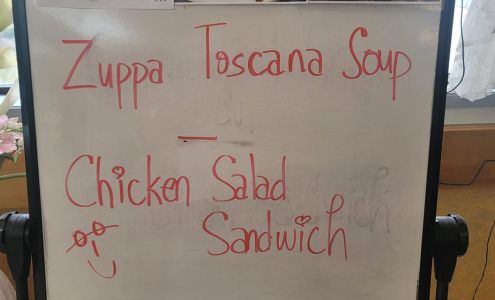 Zuppa Toscana Soup
—
Chicken Salad
Sandwich